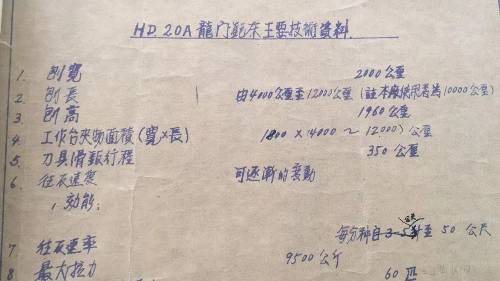 HD 20A 龍門鉋床主要技術資料.
1. 刨寬 2000公厘
2. 刨長 由4000公厘至12000公厘(註本廠使用者為10000公厘)
3. 刨高 1960公厘
4. 工作台夾物面積(寬×長) 1800 × (4000 ~ 12000) 公厘
5. 刀具滑鞍行程 350公厘
6. 往反速度 可逐漸的變動
功能:
每分鐘自 3-5 至 50 公尺
7. 往反率
9500公斤
8 最大拉力
60 匹